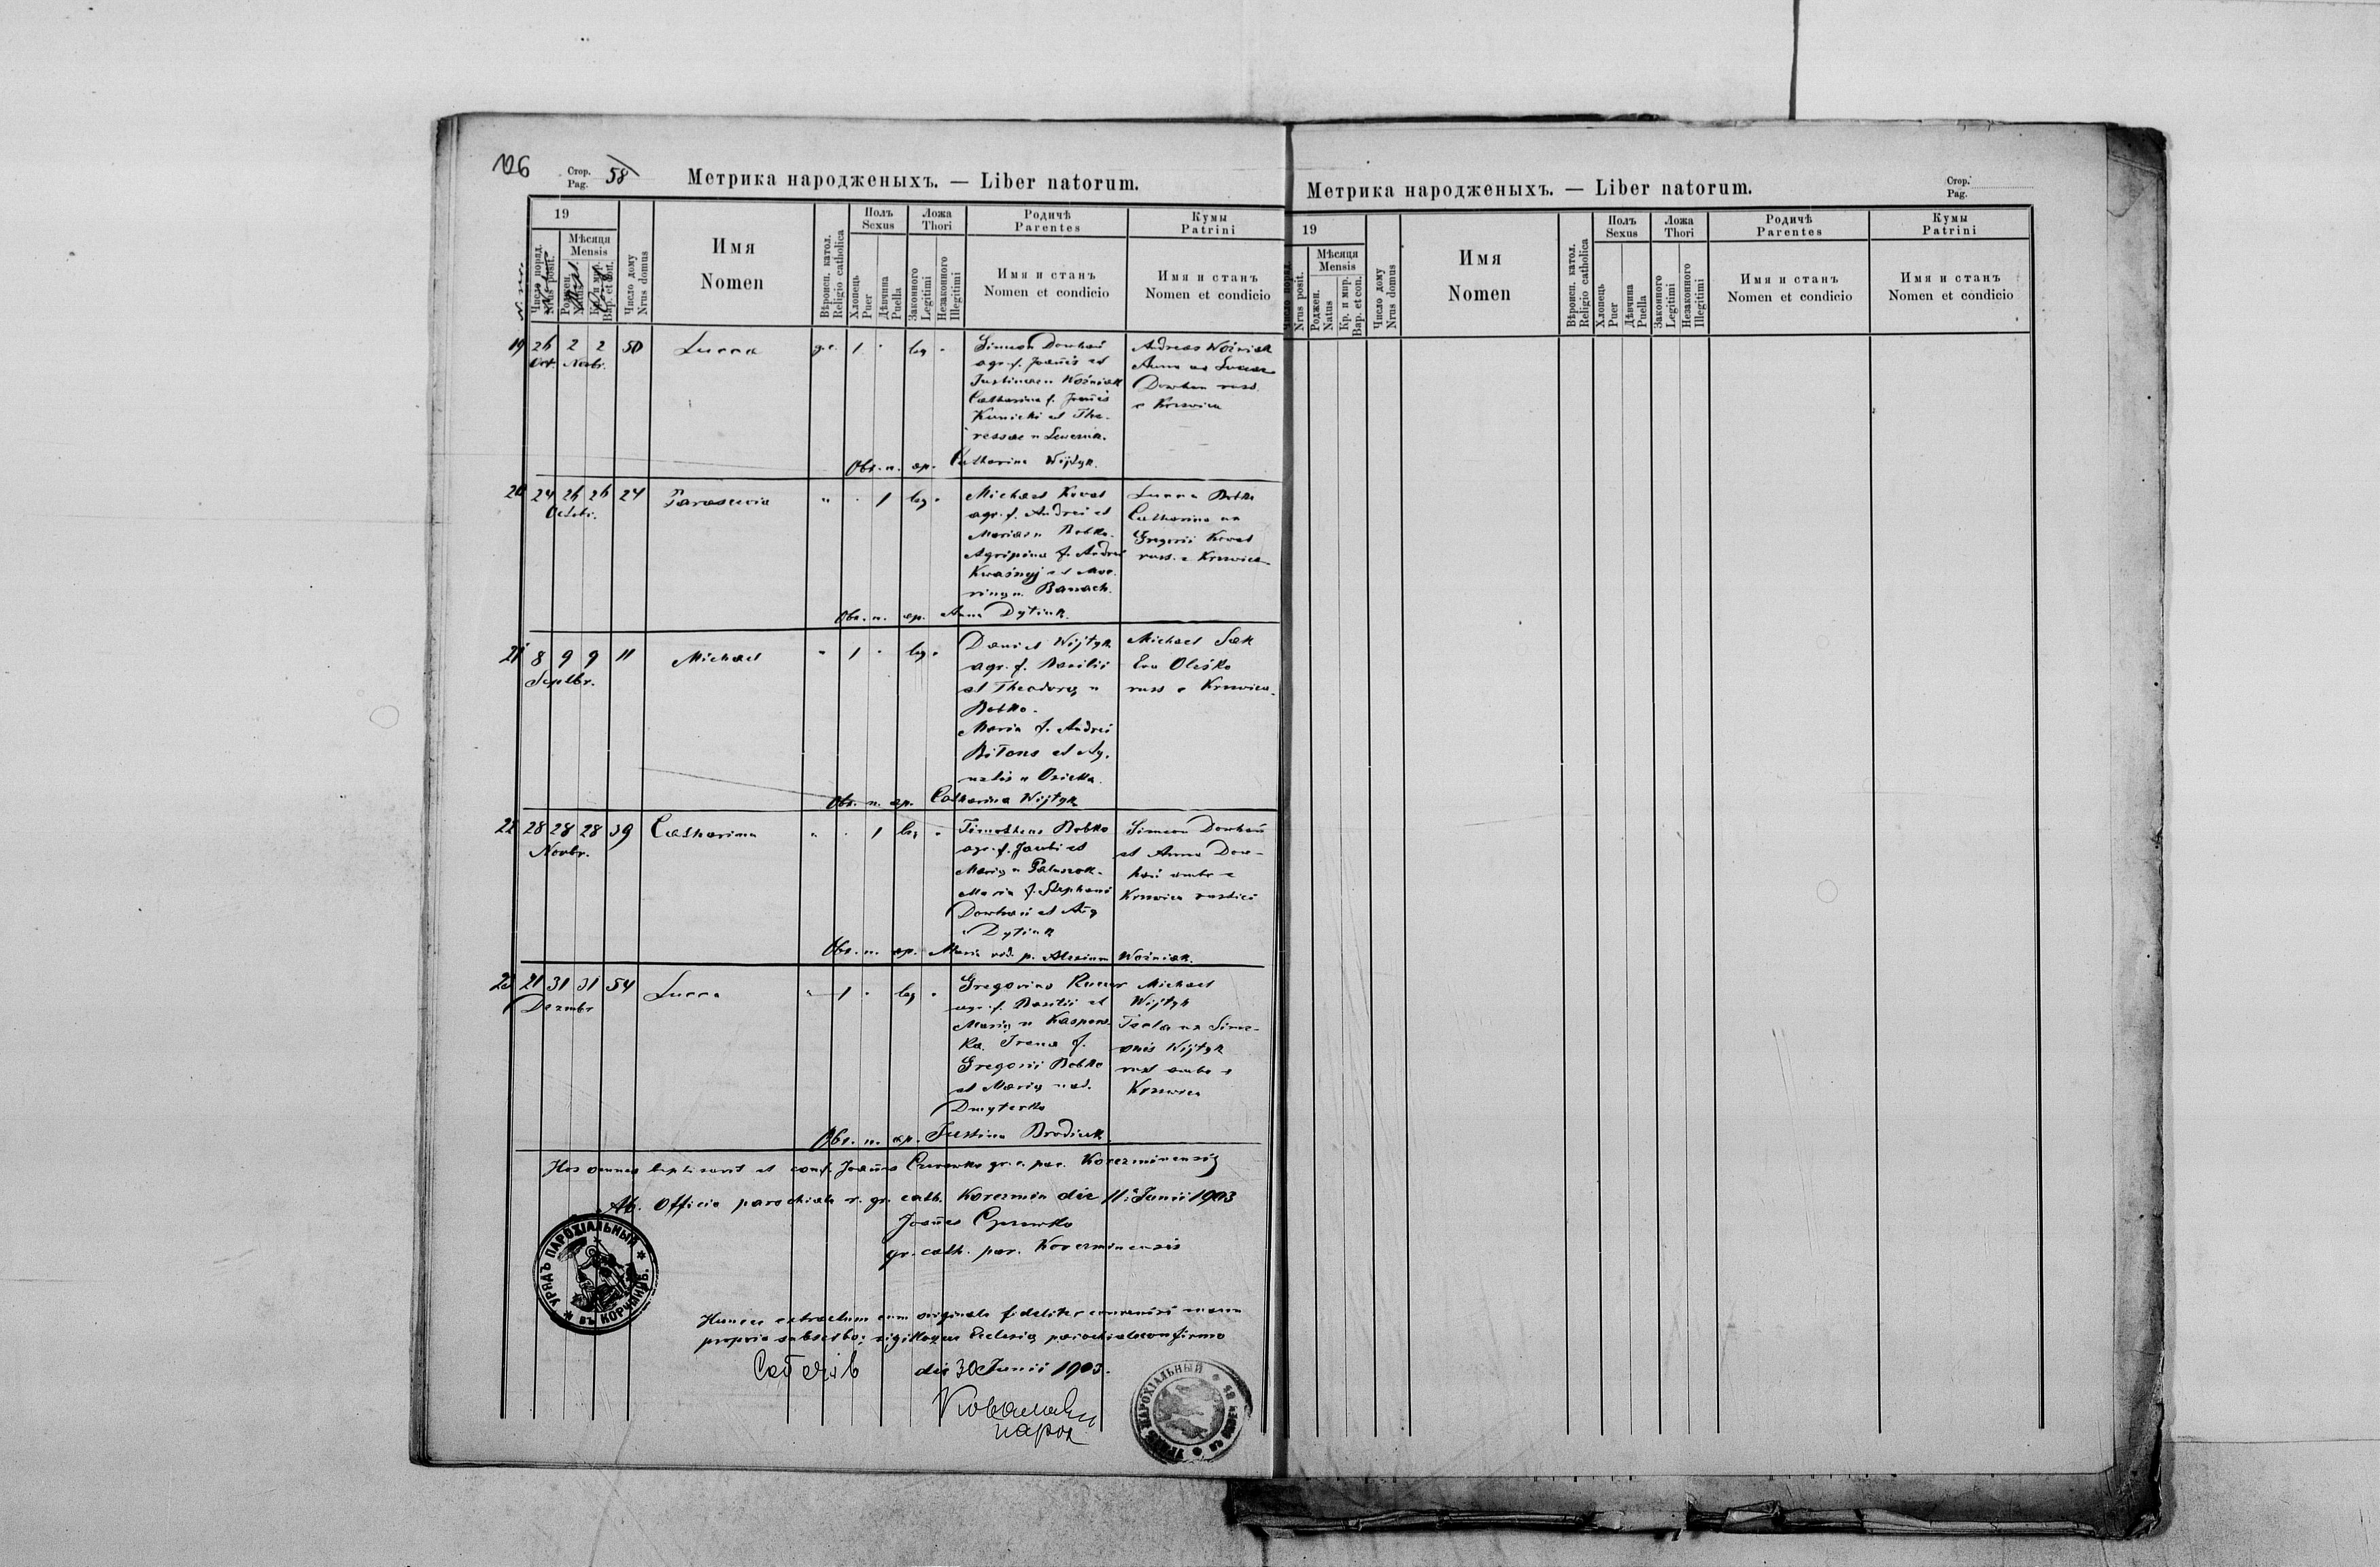 126
Стор.
Pag. 58
Метрика народженыхъ. — Liber natorum.
19
Число поряд.
Nrus posit.
Мѣсяця
Mensis
Роджен.
Natus
Кр. и мир.
Bap. et con.
Число дому
Nrus domus
Имя
Nomen
Вѣроисп. катол.
Religio catholica
Полъ
Sexus
Хлопець
Puer
Дѣвчина
Puella
Ложа
Thori
Законного
Legitimi
Незаконного
Illegitimi
Родичѣ
Parentes
Имя и станъ
Nomen et condicio
Кумы
Patrini
Имя и станъ
Nomen et condicio
19 26 2 2 50 Lucca gr.c. 1 leg
Oct. Novbr.
Simeon Dowhań
agr. f. Joannis et
Justinae n Woźniak
Catharina f. Joannis
Kunicki et The-
ressae n
Andreas Woźniak
Anna ux Lucae
Dowhan rust.
e Krzewica
Obs. n. ap. Catharina Wijtyk.
20 24 26 26 24 Parascevia " 1 leg
Octobr.
Michael Kowal
agr. f. Andrei et
Mariae n Bobko.
Agripina f. Andrei
Kwaśnyj et Ma-
rine n. Banach.
Lucca Bobko
Catharina ux
Gregorii Kowal
rust. e Krzewica
Obs. n. ap. Anna Dytiuk.
21 8 9 9 11 Michael " 1 leg
Septbr.
Daniel Wijtyk
agr. f. Basilii
et Theodorę n
Bobko.
Maria f. Andrei
et
n
Michael Sak
Eva Oleśko
rust e Krzewica.
Obs. n. ap. Catharina Wijtyk
22 28 28 28 39 Catharina " 1 leg
Novbr.
Timotheus Bobko
agr. f. Jacobi et
Marię n
Maria f. Stephani
Dowhań et Anę
n Dytiuk
Simeon Dowhań
et Anna Dow-
hań ambo e
Krzewica rustici
Obs. n. ap. Maria vid. p. Alexium Woźniak.
23 21 31 31 54 Lucca " 1 leg
Dezmbr
Gregorius
agr. f. Basilii et
Marię n Kaspers-
ka. Irena f.
Gregorii Bobko
et Marię nat.
Dmyterko
Michael
Wijtyk
Tecla ux Sime-
onis Wijtyk
rust ambo e
Krzewica
Obs. n. ap. Justina Brodiuk
Hos omnes baptisavit et conf. Joannes gr. c. par. Korczminensis
Ab. Officio parochiali r. gr. cath. Korczmin die 11. Junii 1903
Joannes
gr. cath. par. Korczminensis
УРЯДЪ ПАРОХІАЛЬНЫЙ
ВЪ КОРЧМИНѢ.
Hunce extractum cum originale fideliter convenire manu
propria subscribo; sigilloque Ecclesię parochiale confirmo
die 30 Junii 1903.
парох
УРЯДЪ ПАРОХІАЛЬНЫЙ
Метрика народженыхъ. — Liber natorum.
Стор.
Pag.
19
Число поряд.
Nrus posit.
Мѣсяця
Mensis
Роджен.
Natus
Кр. и мир.
Bap. et con.
Число дому
Nrus domus
Имя
Nomen
Вѣроисп. катол.
Religio catholica
Полъ
Sexus
Хлопець
Puer
Дѣвчина
Puella
Ложа
Thori
Законного
Legitimi
Незаконного
Illegitimi
Родичѣ
Parentes
Имя и станъ
Nomen et condicio
Кумы
Patrini
Имя и станъ
Nomen et condicio